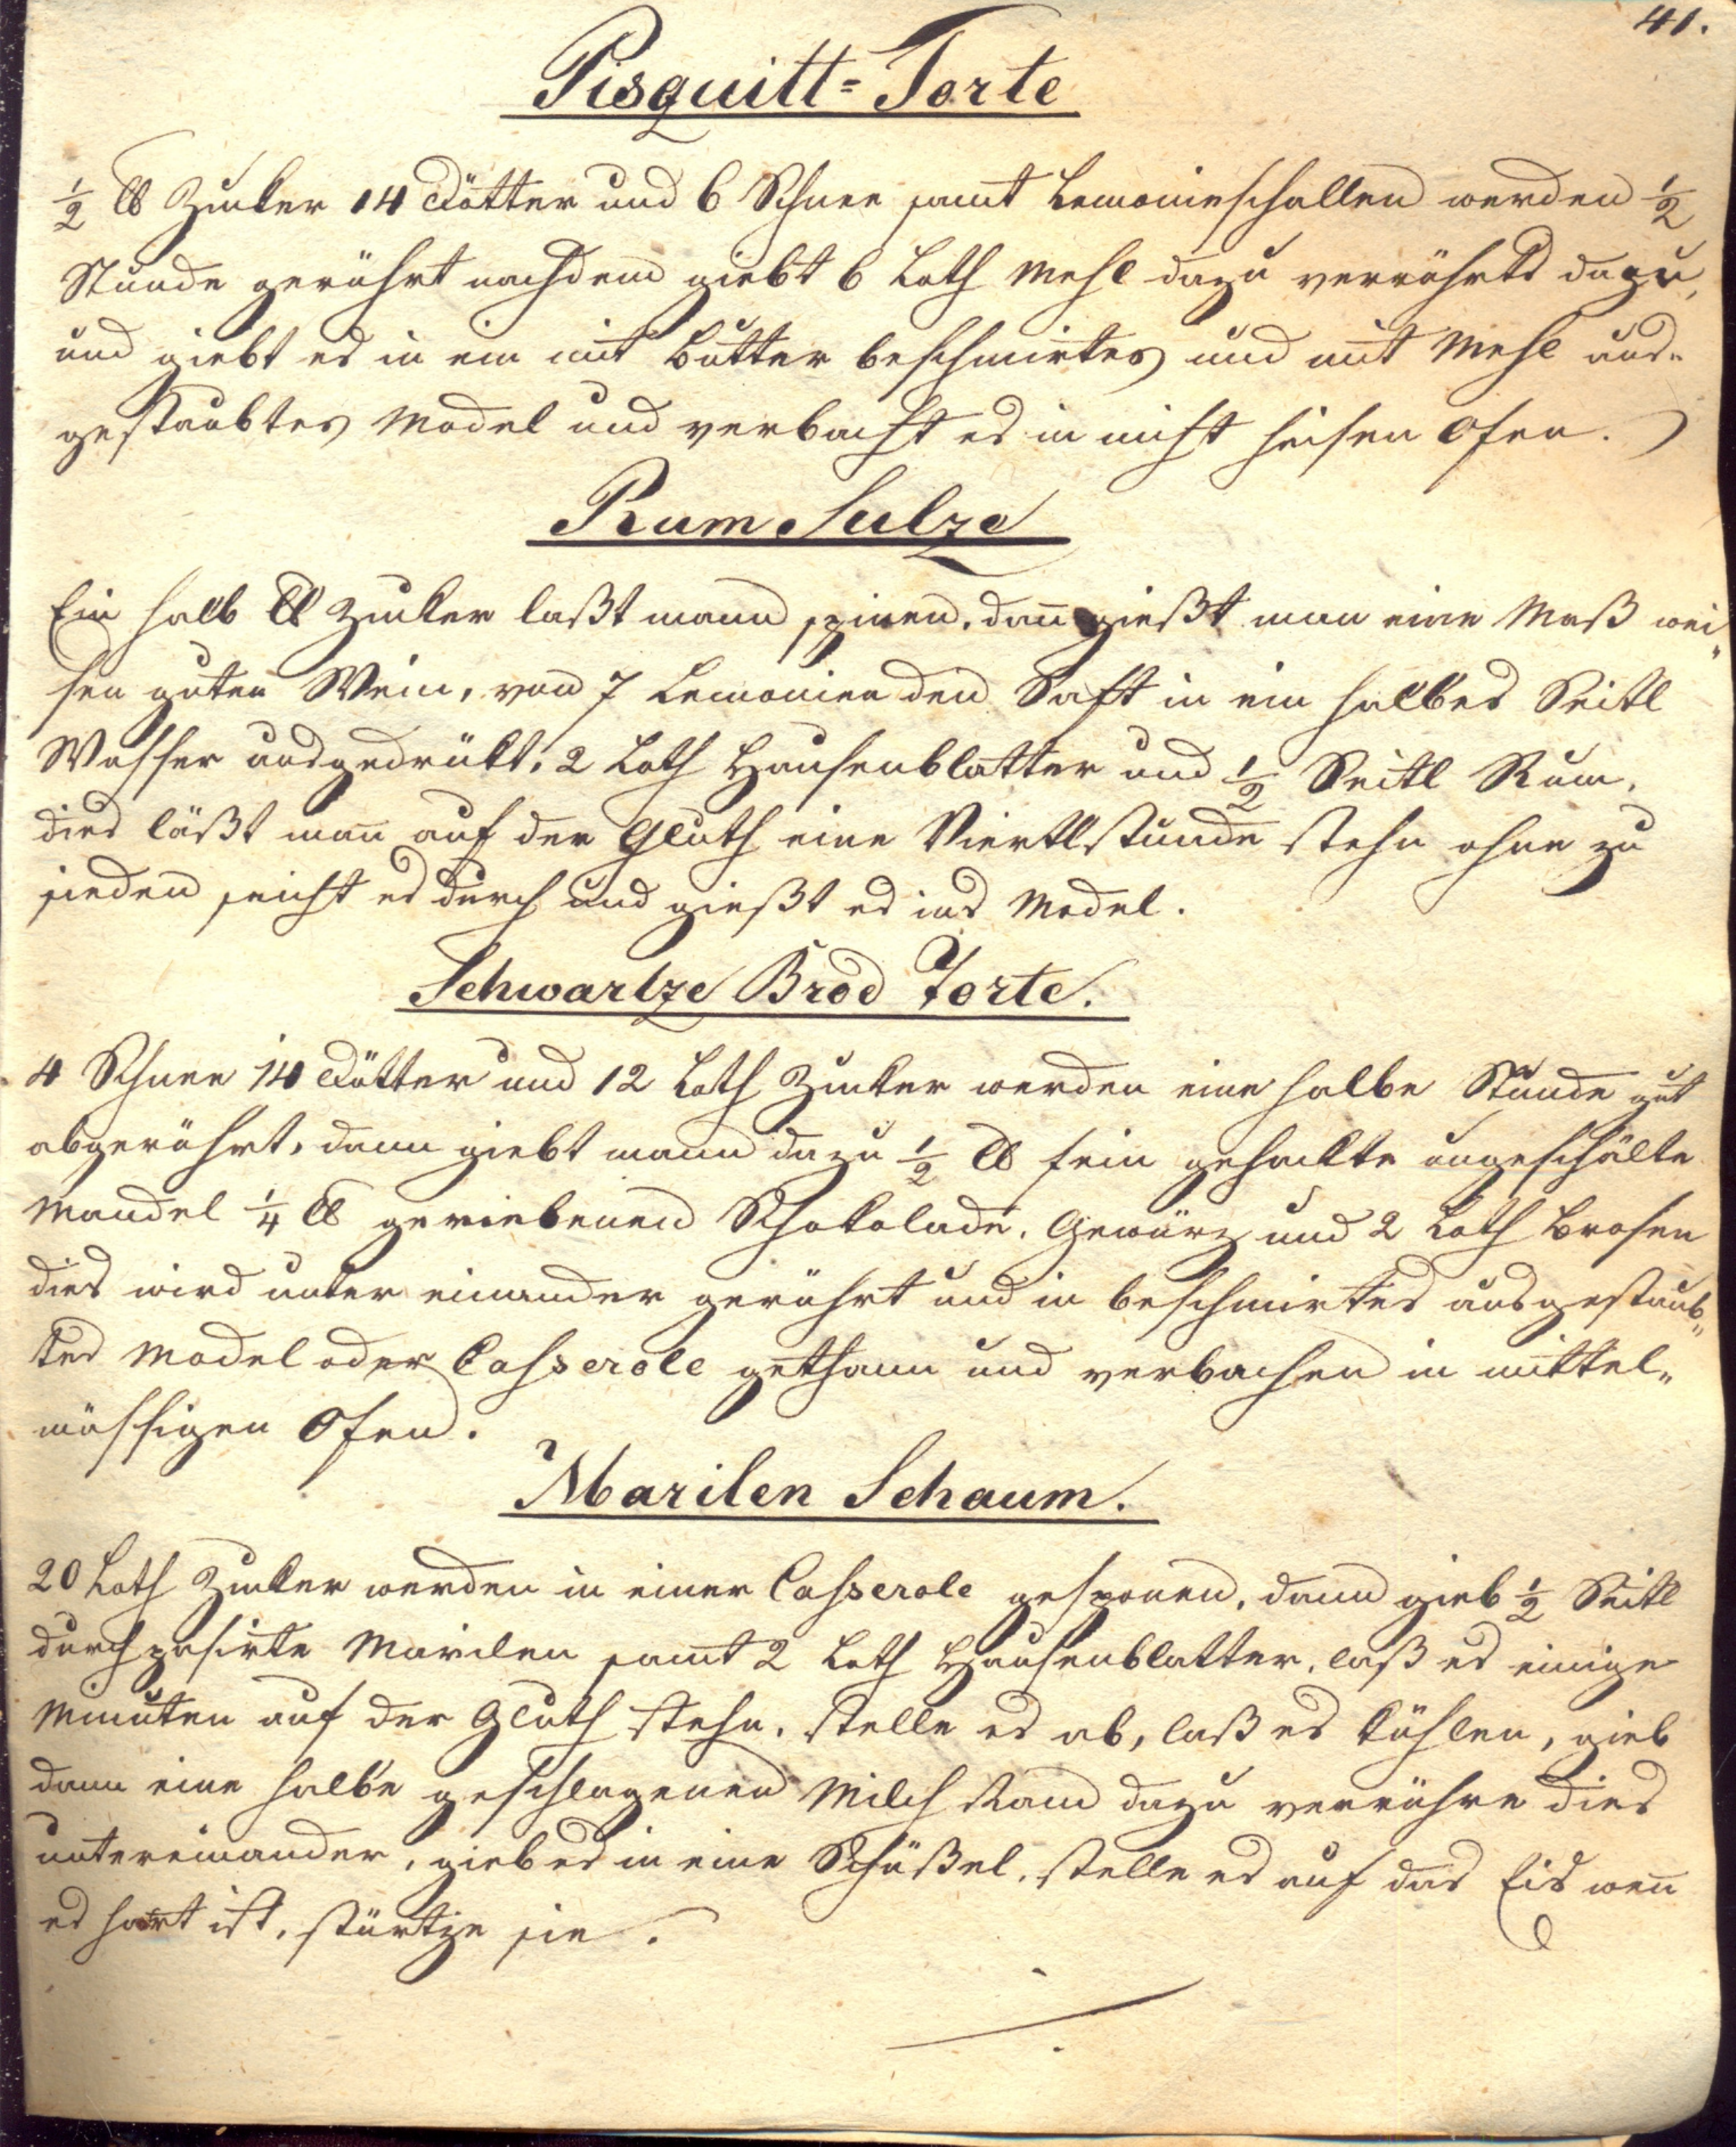 41.
Pisquitt=Torte
½ ℔ Zucker 14 Dötter und 6 Schnee samt Lemonieschallen werden ½
Stunde gerührt nachdem giebt 6 Loth Mehl dazu verrührts dazu,
und giebt es in ein mit Butter beschmirtes und mit Mehl aus„
gestaubtes Model und verbacht es in nicht heisen Ofen.
Rum Sulze
Ein halb ℔ Zucker laßt mann spinen, dan̄ gießt man eine Maß wei„
sen guten Wein, von 7 Lemonien den Saft in ein halbes Seitl
Wasser ausgedrükt, 2 Loth Hausenblatter und ½ Seitl Rum,
dies läßt man̄ auf der Gluth eine Viertlstunde stehn ohne zu
sieden seicht es durch und gießt es ins Model.
Schwartze Brod Torte.
4 Schnee 14 Dötter und 12 Loth Zucker werden eine halbe Stunde gut
abgerührt, dann giebt mann dazu ½ ℔ fein gehackte ungeschälte
Mandel ¼ ℔ geriebenen Schokolade, Gewürz und 2 Loth Brosen
dies wird unter einander gerührt und in beschmirtes ausgestaub„
tes Model oder Casserole gethann und verbachen in mittel„
mässigen Ofen.
Marilen Schaum.
20 Loth Zucker werden in einer Casserole gesponen, dann gieb ½ Seitl
durchpasirte Marilen samt 2 Loth Hausenblatter, laß es einige
Minuten auf der Gluth stehn, stelle es ab, laß es kühlen, gieb
dann eine halbe geschlagenen Milch Ram dazu verrühre dies
untereinander, gieb es in eine Schüßel, stelle es auf das Eis wen̄
es hart ist, stürtze sie.